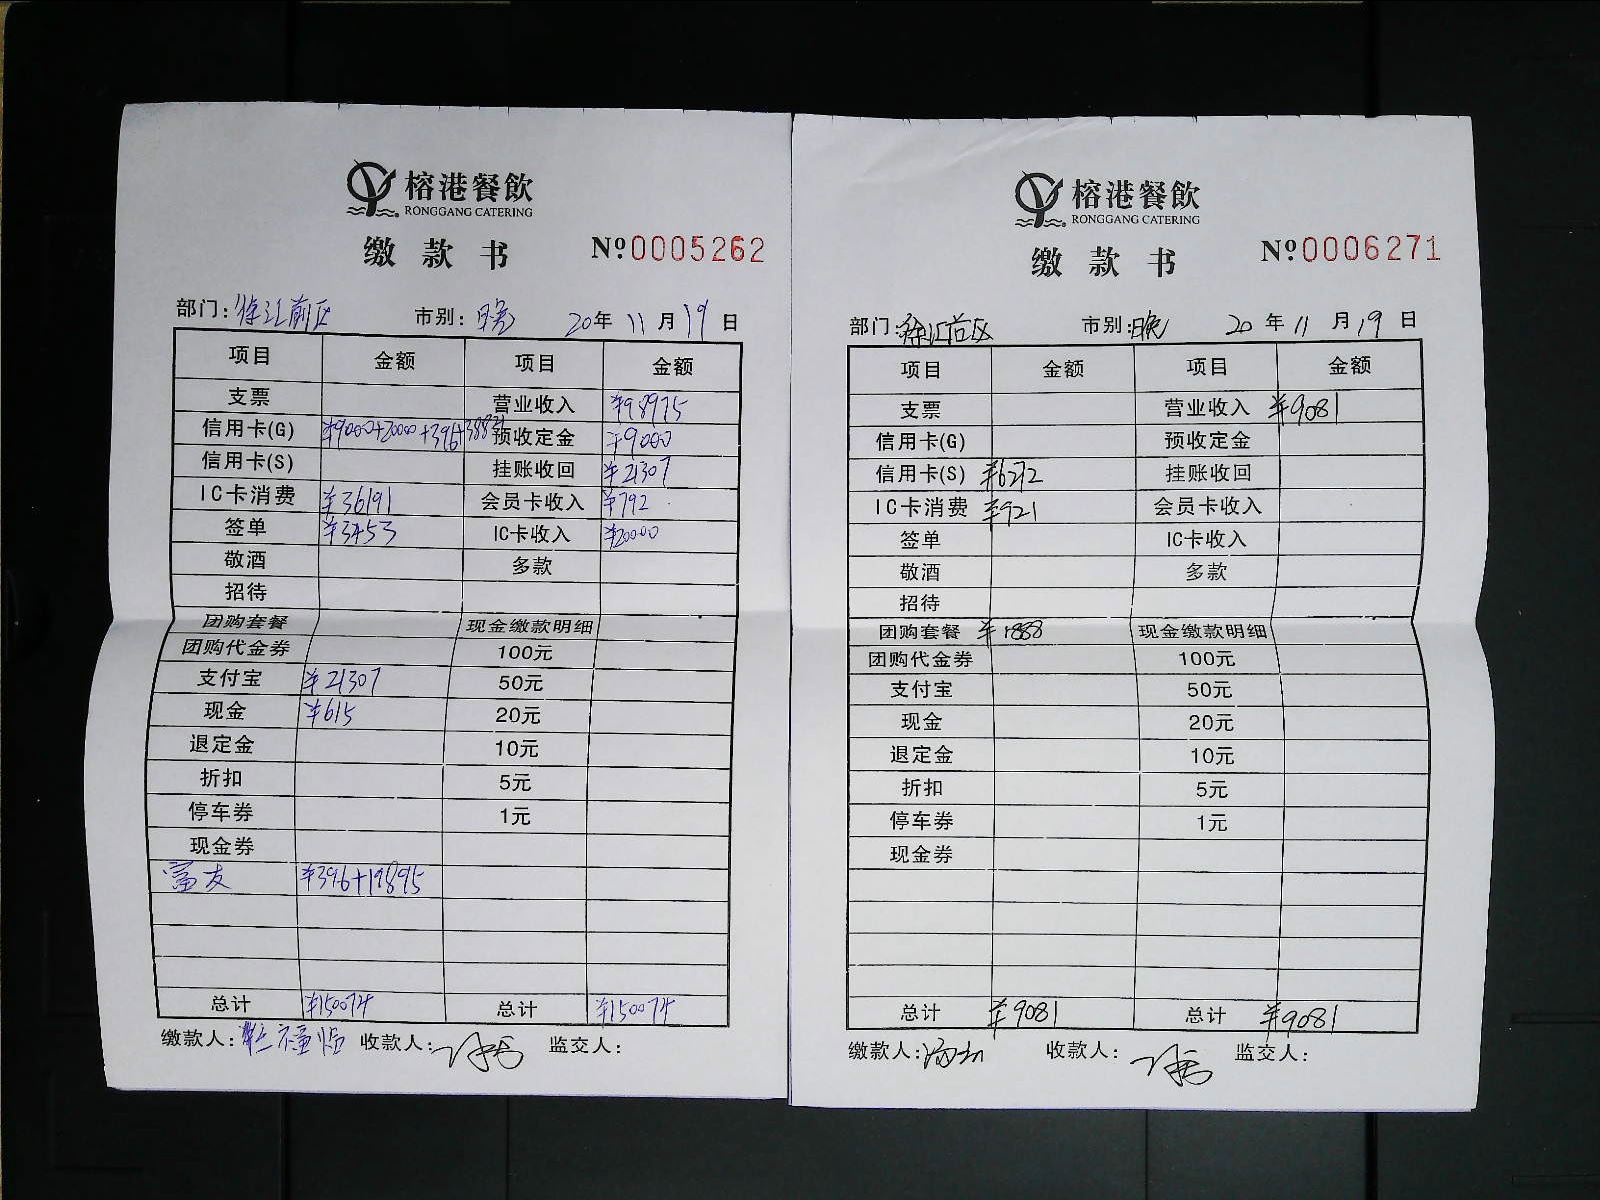 榕港餐飲
RONGGANG CATERING
缴款书 Nº0005262
部门:徐汇前区 市别:晚 20年11月19日
项目 金额 项目 金额
支票 营业收入 ¥98975
信用卡(G) ¥9000+20000+396+38821 预收定金 ¥9000
信用卡(S) 挂账收回 ¥21307
IC卡消费 ¥36191 会员卡收入 ¥792
签单 ¥3453 IC卡收入 ¥20000
敬酒 多款
招待
团购套餐 现金缴款明细
团购代金券 100元
支付宝 ¥21307 50元
现金 ¥615 20元
退定金 10元
折扣 5元
停车券 1元
现金券
富友 ¥396+19895
总计 ¥150074 总计 ¥150074
缴款人: 收款人: 监交人:
榕港餐飲
RONGGANG CATERING
缴款书 Nº0006271
部门:徐汇前区 市别:晚 20年11月19日
项目 金额 项目 金额
支票 营业收入 ¥9081
信用卡(G) 预收定金
信用卡(S) ¥6272 挂账收回
IC卡消费 ¥921 会员卡收入
签单 IC卡收入
敬酒 多款
招待
团购套餐 ¥1888 现金缴款明细
团购代金券 100元
支付宝 50元
现金 20元
退定金 10元
折扣 5元
停车券 1元
现金券
总计 ¥9081 总计 ¥9081
缴款人: 收款人: 监交人: